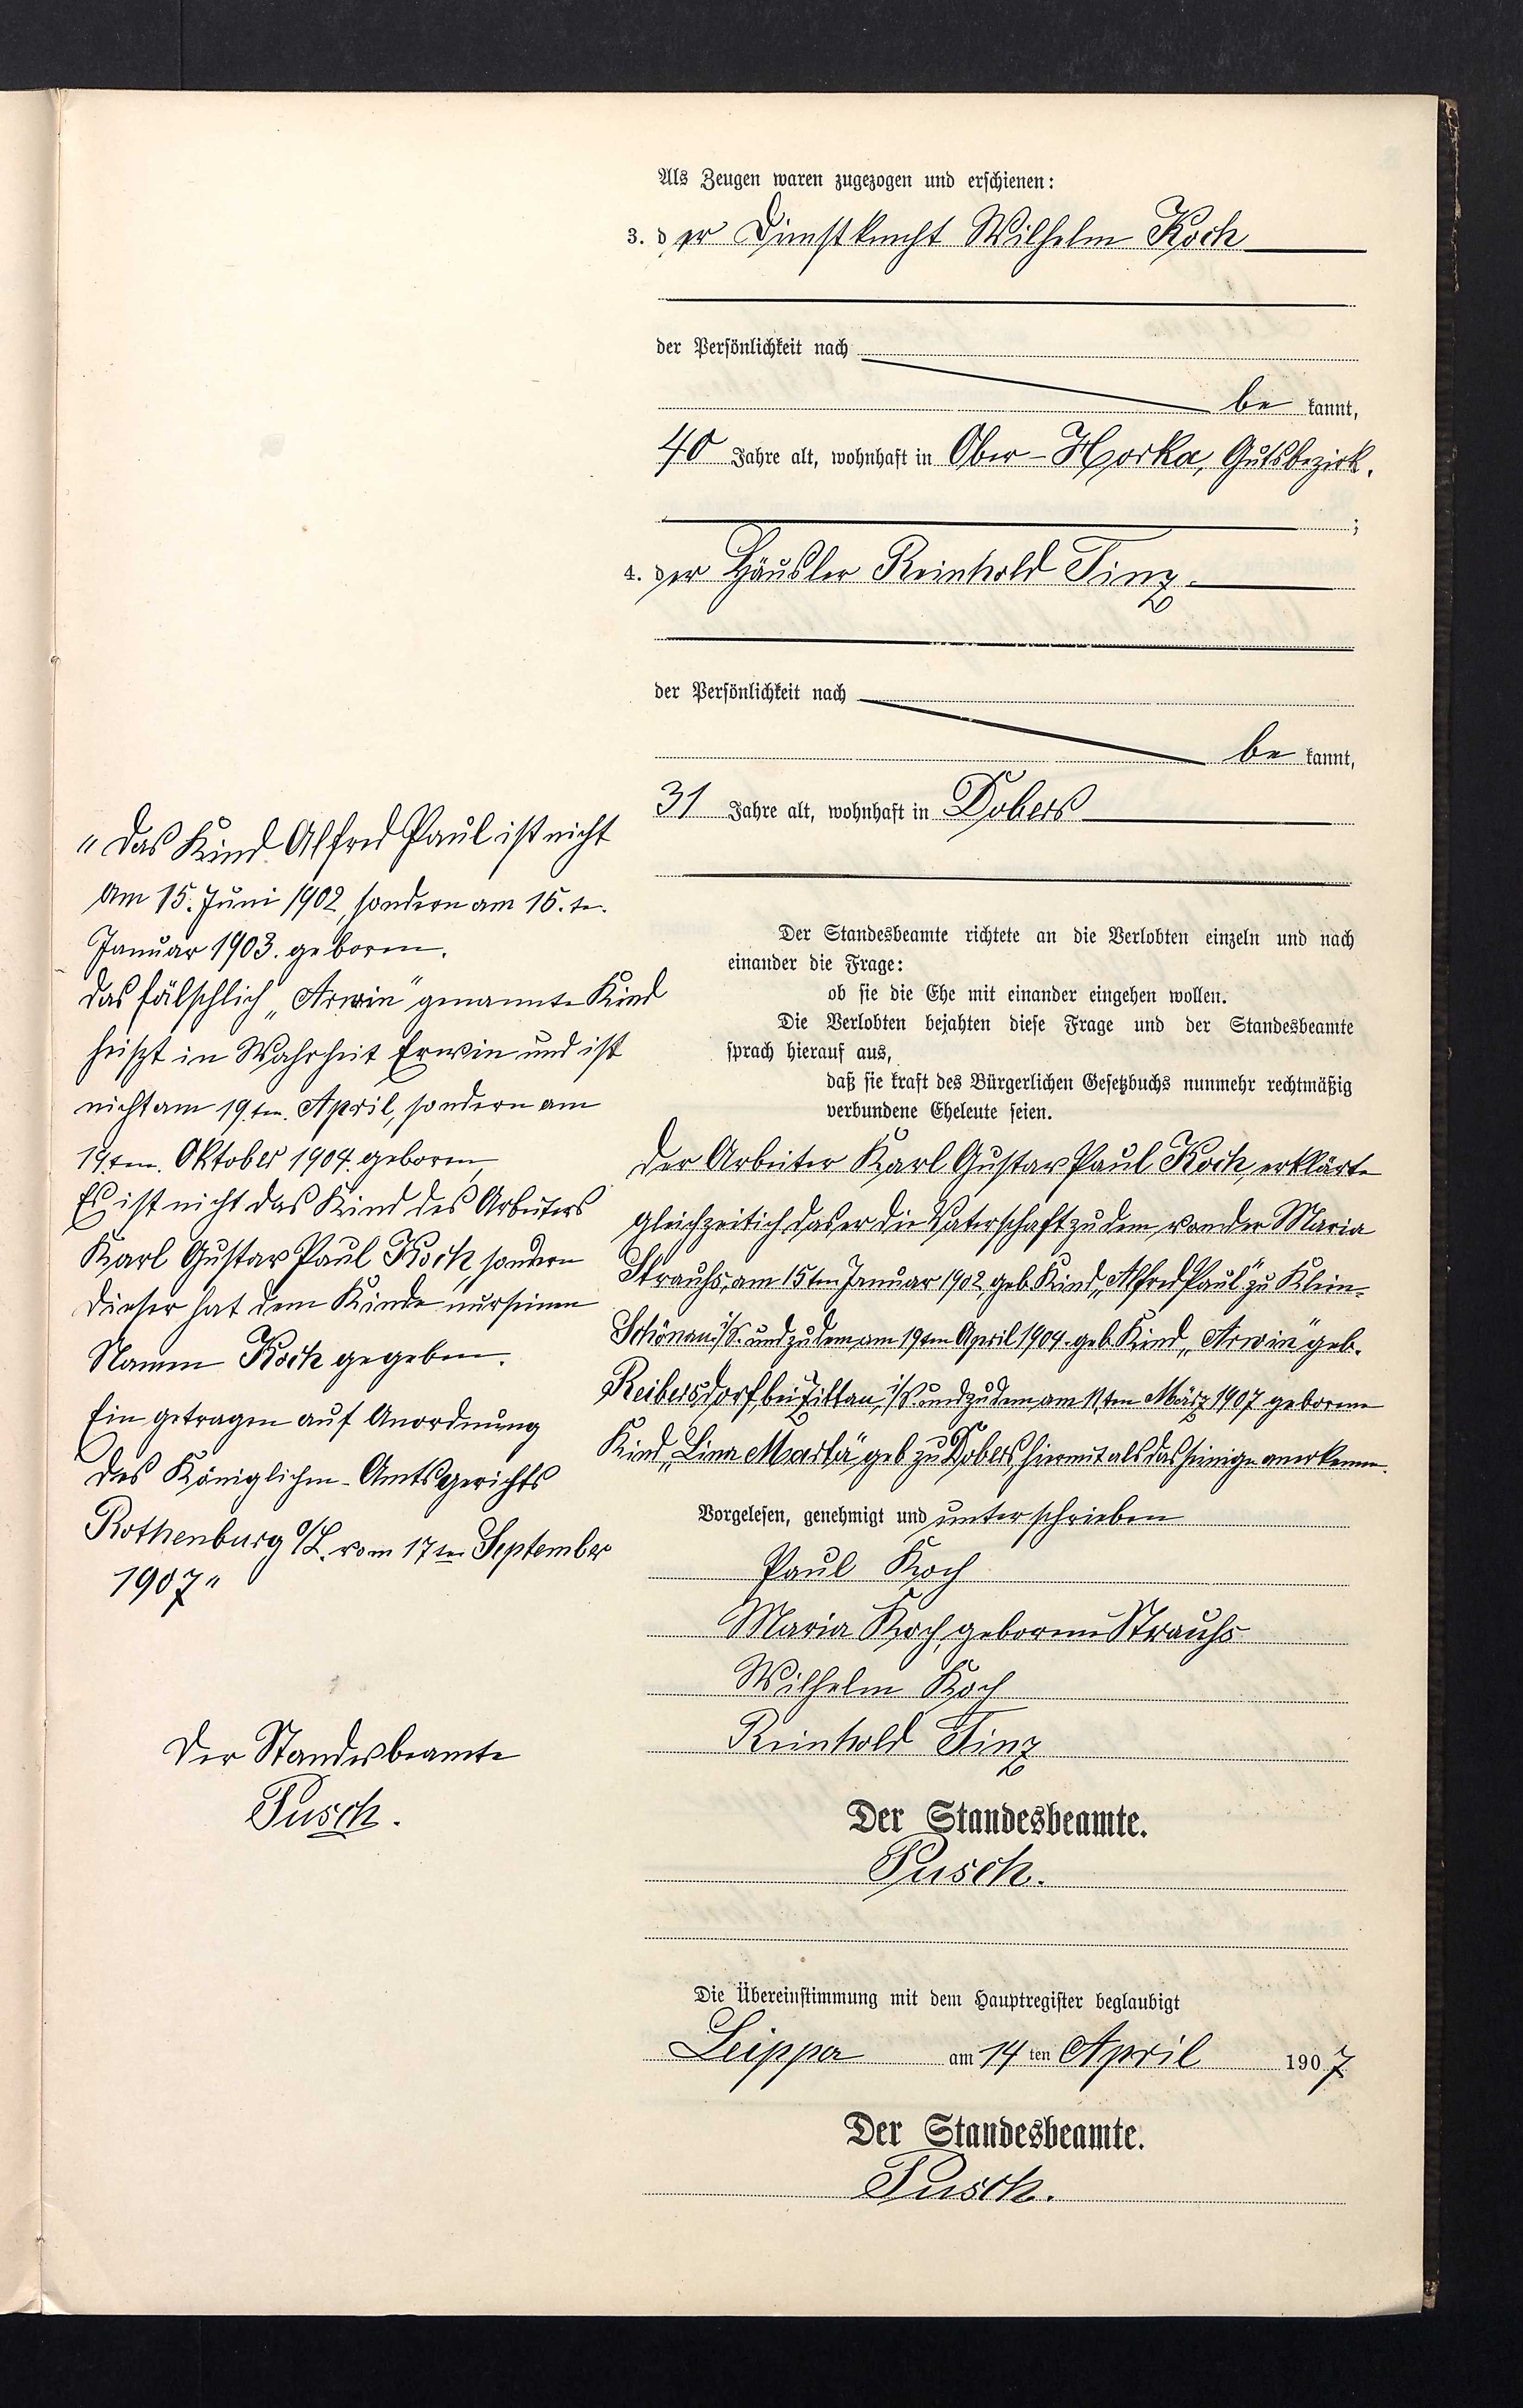 Als Zeugen waren zugezogen und erschienen:
3. der Dienstknecht Wilhelm Koch
der Persönlichkeit nach
be kannt,
40 Jahre alt, wohnhaft in Ober-Horka, Gutsbezirk.
;
4. der Häusler Reinhold Tinz.
der Persönlichkeit nach
be kannt,
31 Jahre alt, wohnhaft in Dobers
Der Standesbeamte richtete an die Verlobten einzeln und nach
einander die Frage:
ob sie die Ehe mit einander eingehen wollen.
Die Verlobten bejahten diese Frage und der Standesbeamte
sprach hierauf aus,
daß sie kraft des Bürgerlichen Gesetzbuchs nunmehr rechtmäßig
verbundene Eheleute seien.
Der Arbeiter Karl Gustav Paul Koch, erklärte
gleichzeitich das er die Vaterschaft zu dem von der Maria
Strauhs, am 15ten Januar 1902, geb. Kind "Alfred Paul" zu Klein-
Schönau i/S. und zu dem am 19ten April 1904. geb. Kind "Arwin" geb.
Reibersdorf, bei Zittau, i/S. und zu dem am 11ten März 1907 geborene
Kind "Lina Marta" geb zu Dobers, hiermit als das seinige anerkenne.
Vorgelesen, genehmigt und unterschrieben
Paul Koch
Maria Koch, geborene Strauhs
Wilhelm Koch
Reinhold Tinz
Der Standesbeamte.
Pusch.
Die Übereinstimmung mit dem Hauptregister beglaubigt
Leippa am 14 ten April 1907
Der Standesbeamte.
Pusch.
"Das Kind Alfred Paul ist nicht
am 15. Juni 1902, sondern am 15. te.
Januar 1903. geboren.
Das fälschlich "Arwin" genannte Kind
heiszt in Wahrheit Erwin und ist
nicht am 19.ten. April, sondern am
19.ten. Oktober 1904. geboren,
Es ist nicht das Kind des Arbeiters
Karl Gustav Paul Koch, sondern
dieser hat dem Kinde nur seinen
Namen Koch gegeben.
Ein getragen auf Anordnung
des Königlichen-Amtsgerichts
Rothenburg o/L. vom 17ten September
1907"
Der Standesbeamte
Pusch.